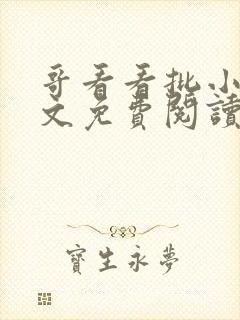 哥看看批小
文免費閱讀
寶生永夢